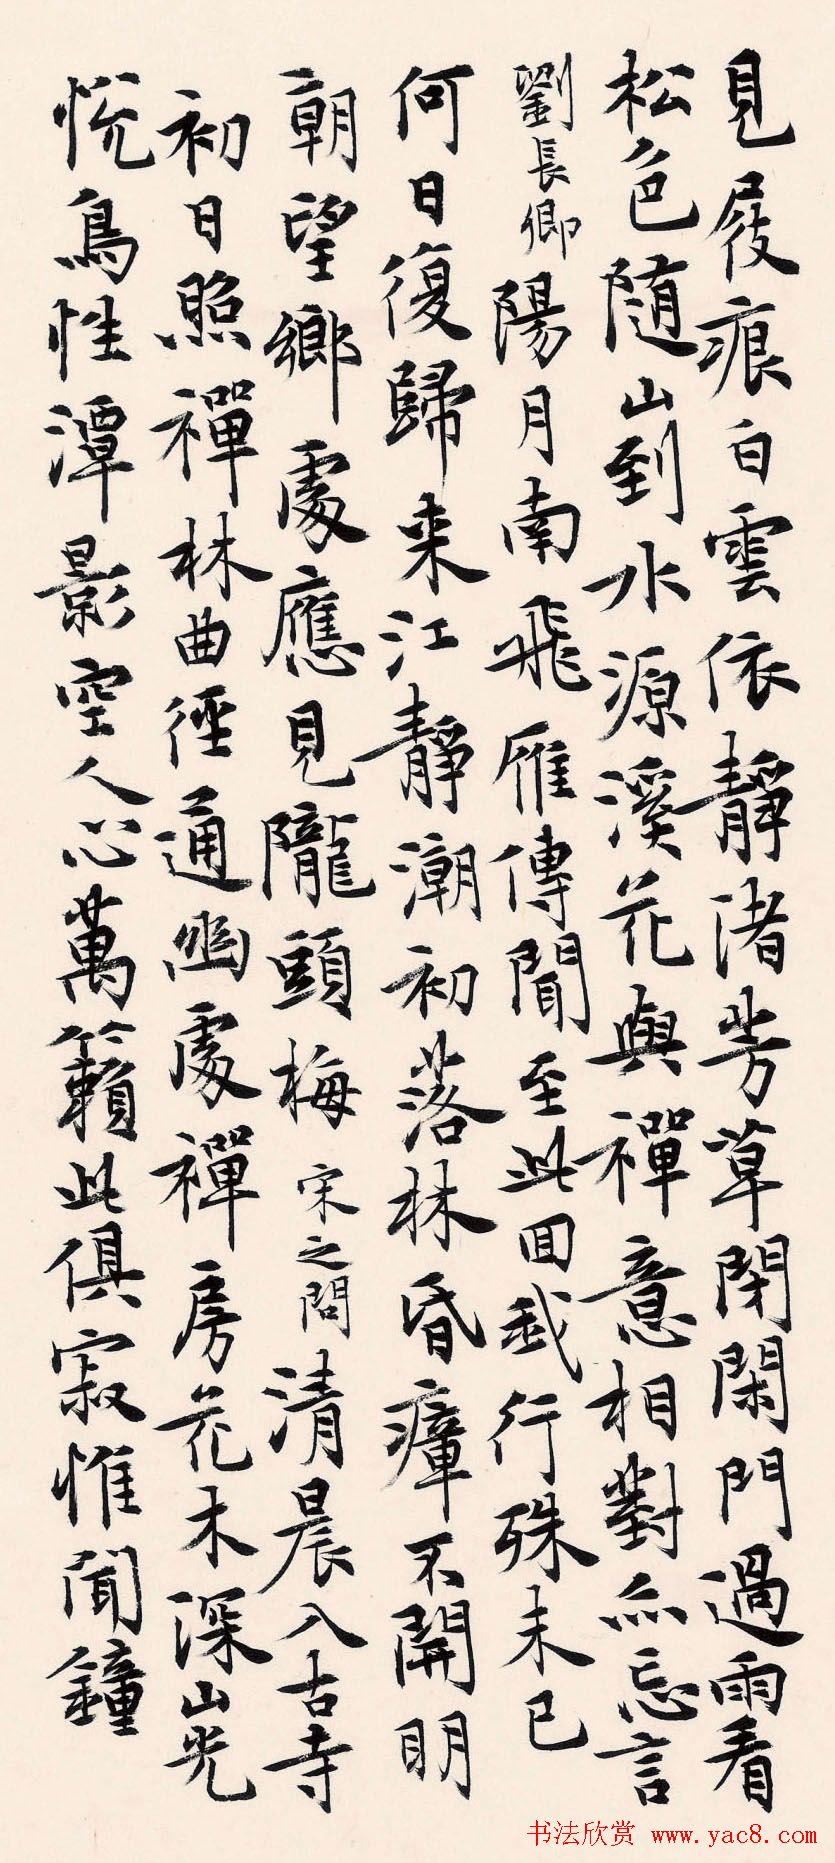 見屐痕白雲依靜渚芳草閉閑門過雨看
松色随山到水源溪花與禪意相對亦忘言
劉長卿陽月南飛雁傳聞至此回我行殊未已
何日復歸来江靜潮初落林昏瘴不開明
朝望鄉處應見隴頭梅宋之問清晨入古寺
初日照禪林曲徑通幽處禪房花木深山光
悅鳥性潭影空人心萬籟此俱寂惟聞鐘
书法欣赏 www.yac8.com